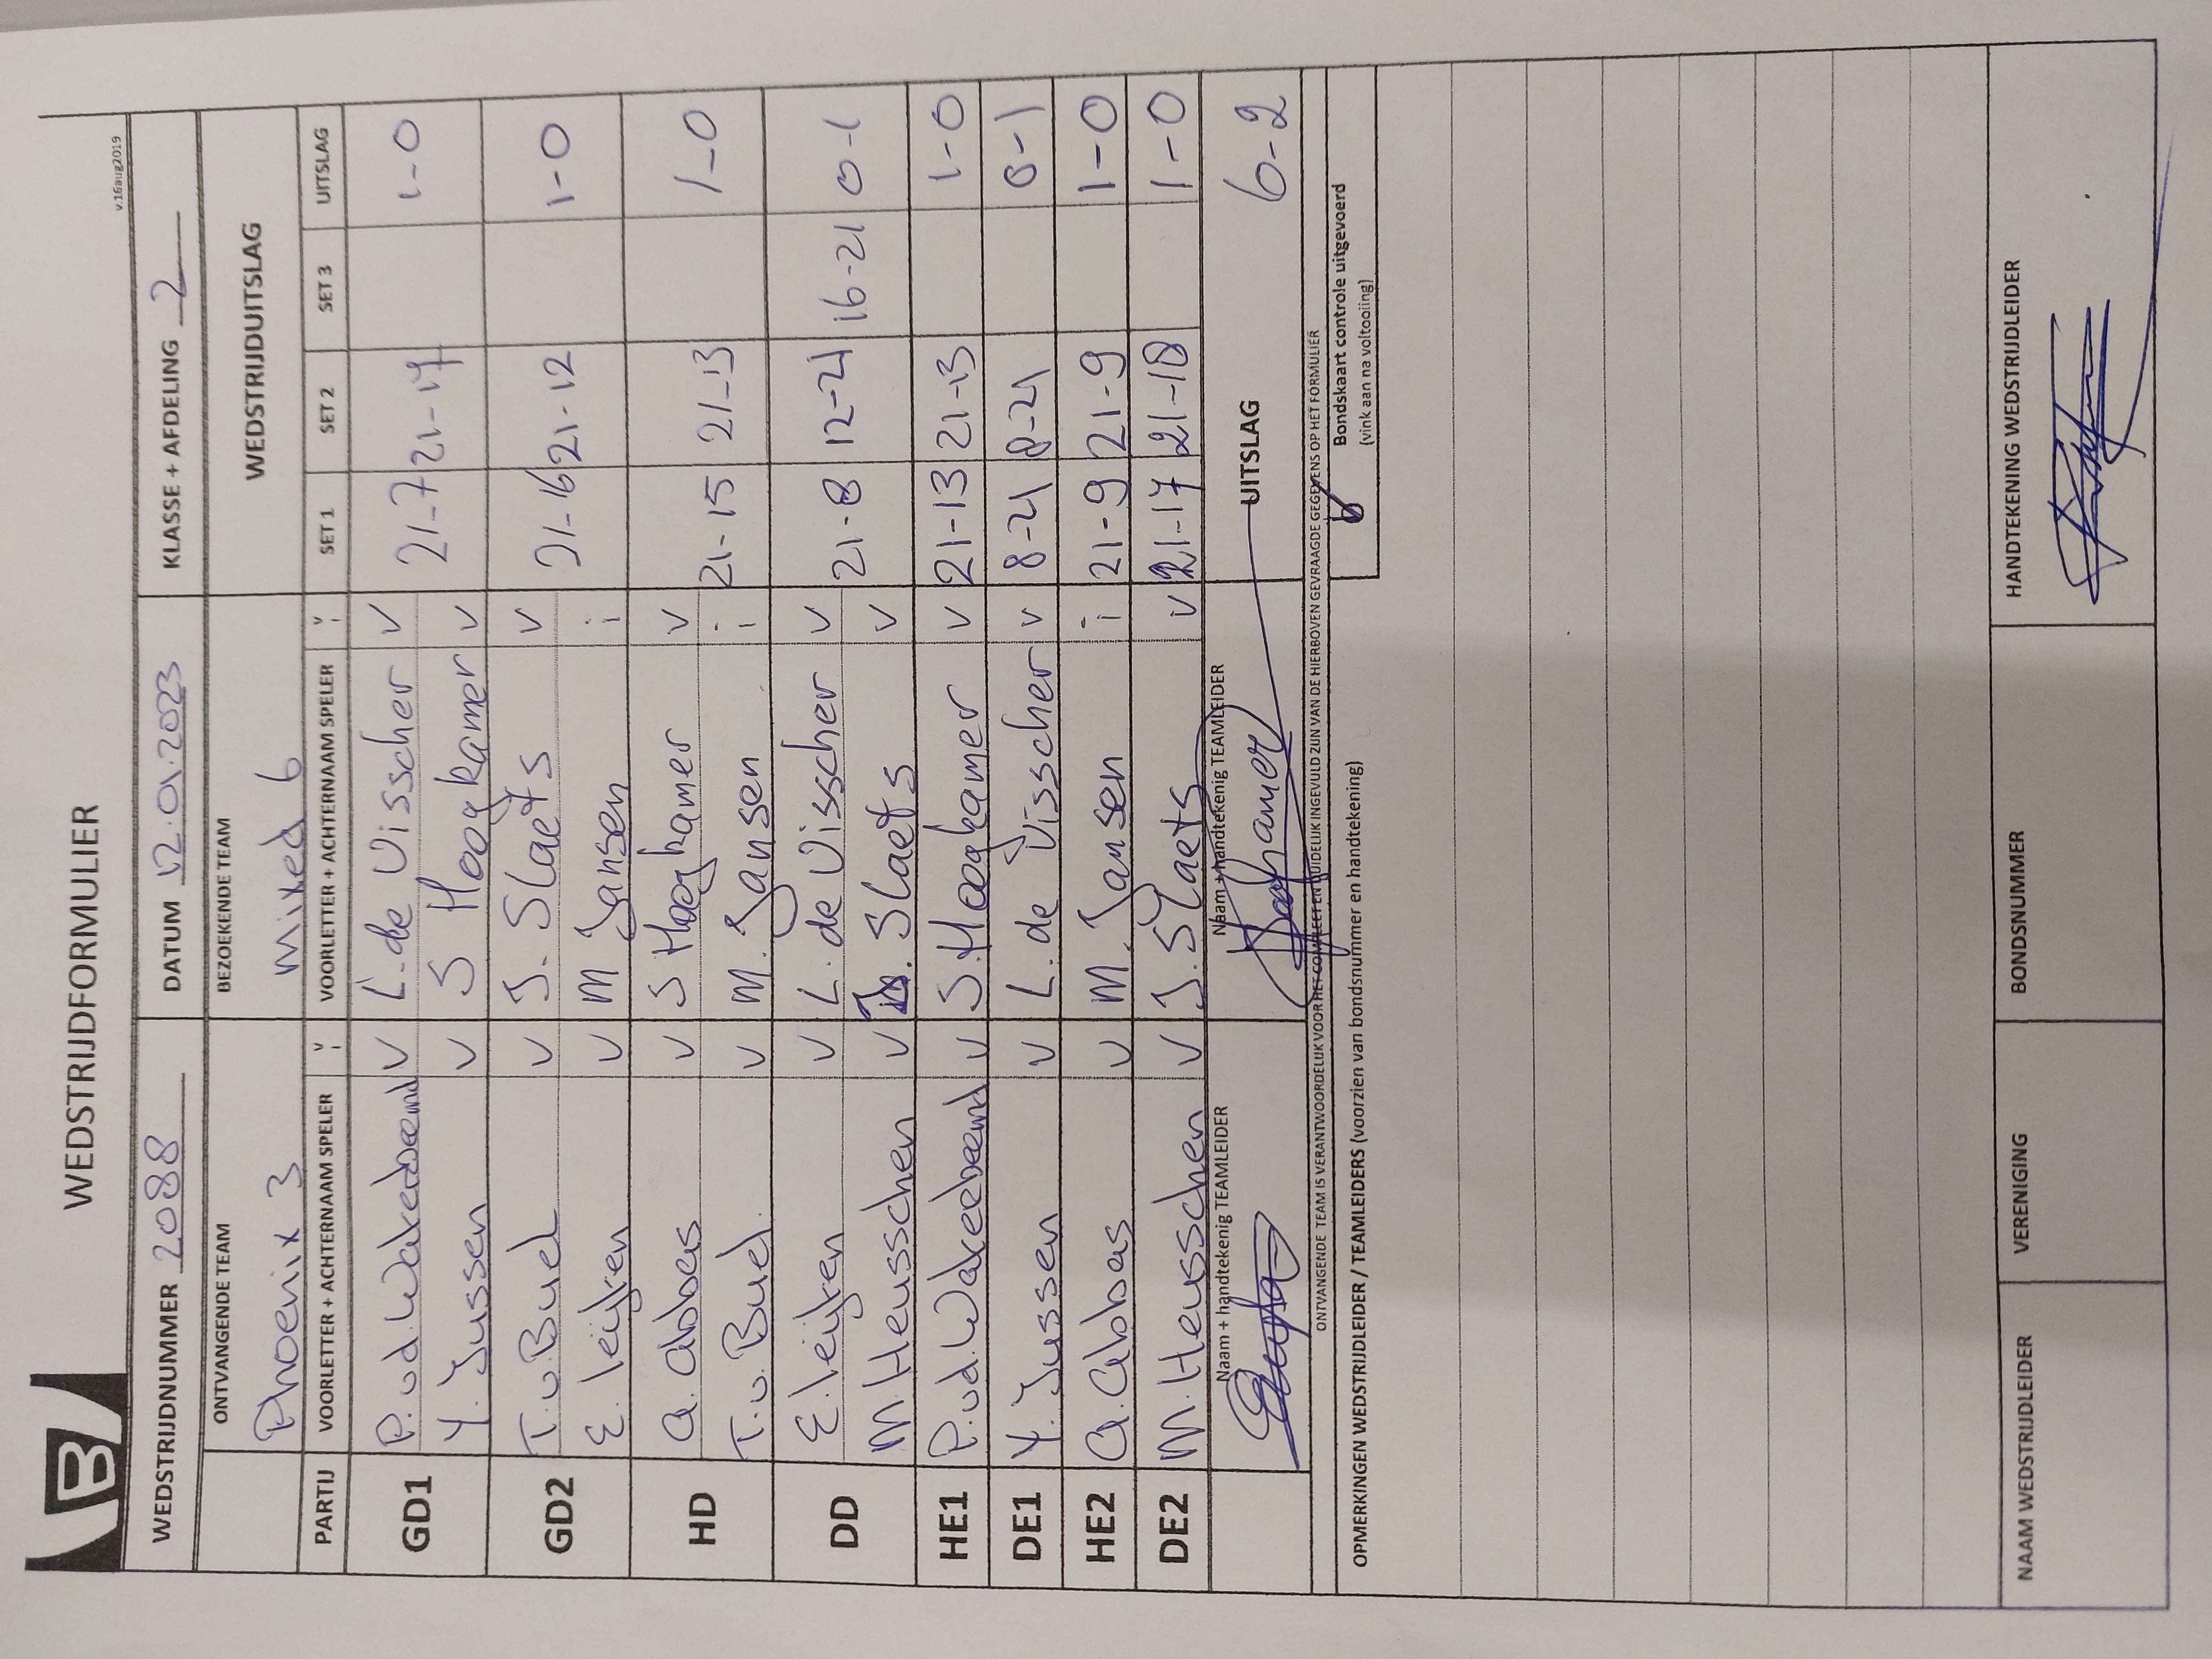 WEDSTRIJDFORMULIER
v.16aug2019
B
WEDSTRIJDNUMMER 2088 DATUM 12.01.2023 KLASSE + AFDELING 2
ONTVANGENDE TEAM BEZOEKENDE TEAM WEDSTRIJDUITSLAG
Phoenix 3 mixed 6
PARTIJ VOORLETTER + ACHTERNAAM SPELER v i VOORLETTER + ACHTERNAAM SPELER v i SET 1 SET 2 SET 3 UITSLAG
GD1 P. vd. v L. de Visscher v 21-7 21-17 1-0
Y. Jussen v S Hoogkamer v
GD2 T. v. Buel v J. Slaets v 21-16 21-12 1-0
E. leijten v M Jansen i
HD a. abbas v S Hoogkamer v 21-15 21-13 1-0
T. v. Buel. v M. Jansen i
DD E. leijten v L. de Visscher v 21-8 12-21 16-21 0-1
M. Heusschen v J. Slaets v
HE1 P. vd. v S. Hoogkamer v 21-13 21-13 1-0
DE1 Y. Jussen v L. de Visscher v 8-21 8-21 0-1
HE2 a. abbas v M. Jansen i 21-9 21-9 1-0
DE2 M. Heusschen v J. Slaets v 21-17 21-18 1-0
Naam + handtekenig TEAMLEIDER Naam + handtekenig TEAMLEIDER UITSLAG 6-2
Hoogkamer
ONTVANGENDE TEAM IS VERANTWOORDELIJK VOOR HET COMPLEET EN DUIDELIJK INGEVULD ZIJN VAN DE HIERBOVEN GEVRAAGDE GEGEVENS OP HET FORMULIER
Bondskaart controle uitgevoerd
(vink aan na voltooiing)
OPMERKINGEN WEDSTRIJDLEIDER / TEAMLEIDERS (voorzien van bondsnummer en handtekening)
NAAM WEDSTRIJDLEIDER VERENIGING BONDSNUMMER HANDTEKENING WEDSTRIJDLEIDER